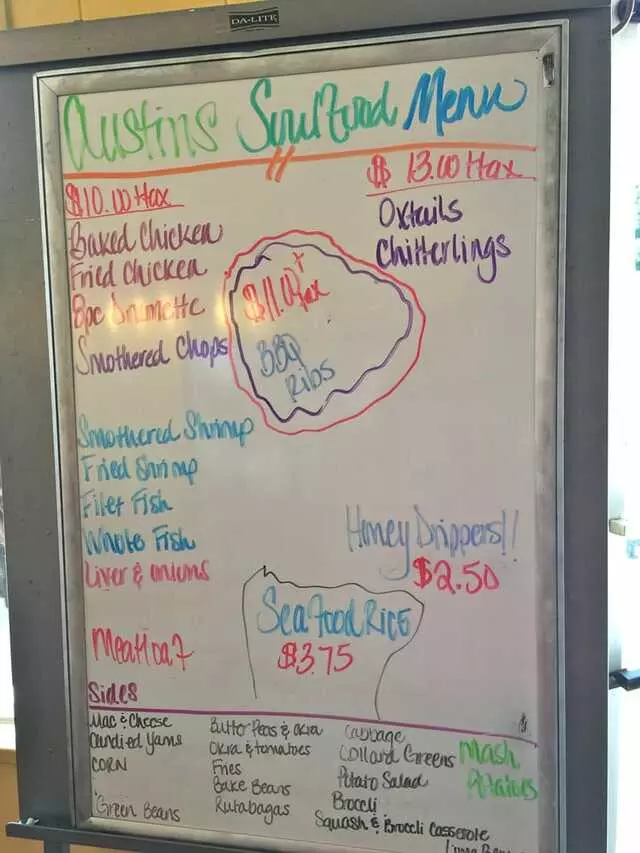 DA-LITE
Austins Soulfood Menu
$10.00 +tax
Baked Chicken
Fried Chicken
8pc Drumette
Smothered Chops
Smothered Shrimp
Fried Shrimp
Filet Fish
Whole Fish
Liver & onions
Meatloaf
$11.00 + tax
BBQ
Ribs
$ 13.00 +tax
Oxtails
Chitterlings
Honey Drippers!!
$2.50
Seafood RICE
$3.75
Sides
Mac & Cheese
Candied Yams
CORN
Green Beans
Butter Peas & Okra
Okra & tomatoes
Fries
Bake Beans
Rutabagas
Cabbage
Collard Greens
Potato Salad
Broccli
Squash & Broccli Casserole
Mash
Potatoes